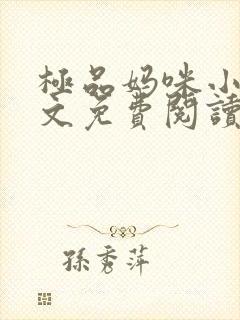 極品妈咪小
文免費閱讀
孫秀萍